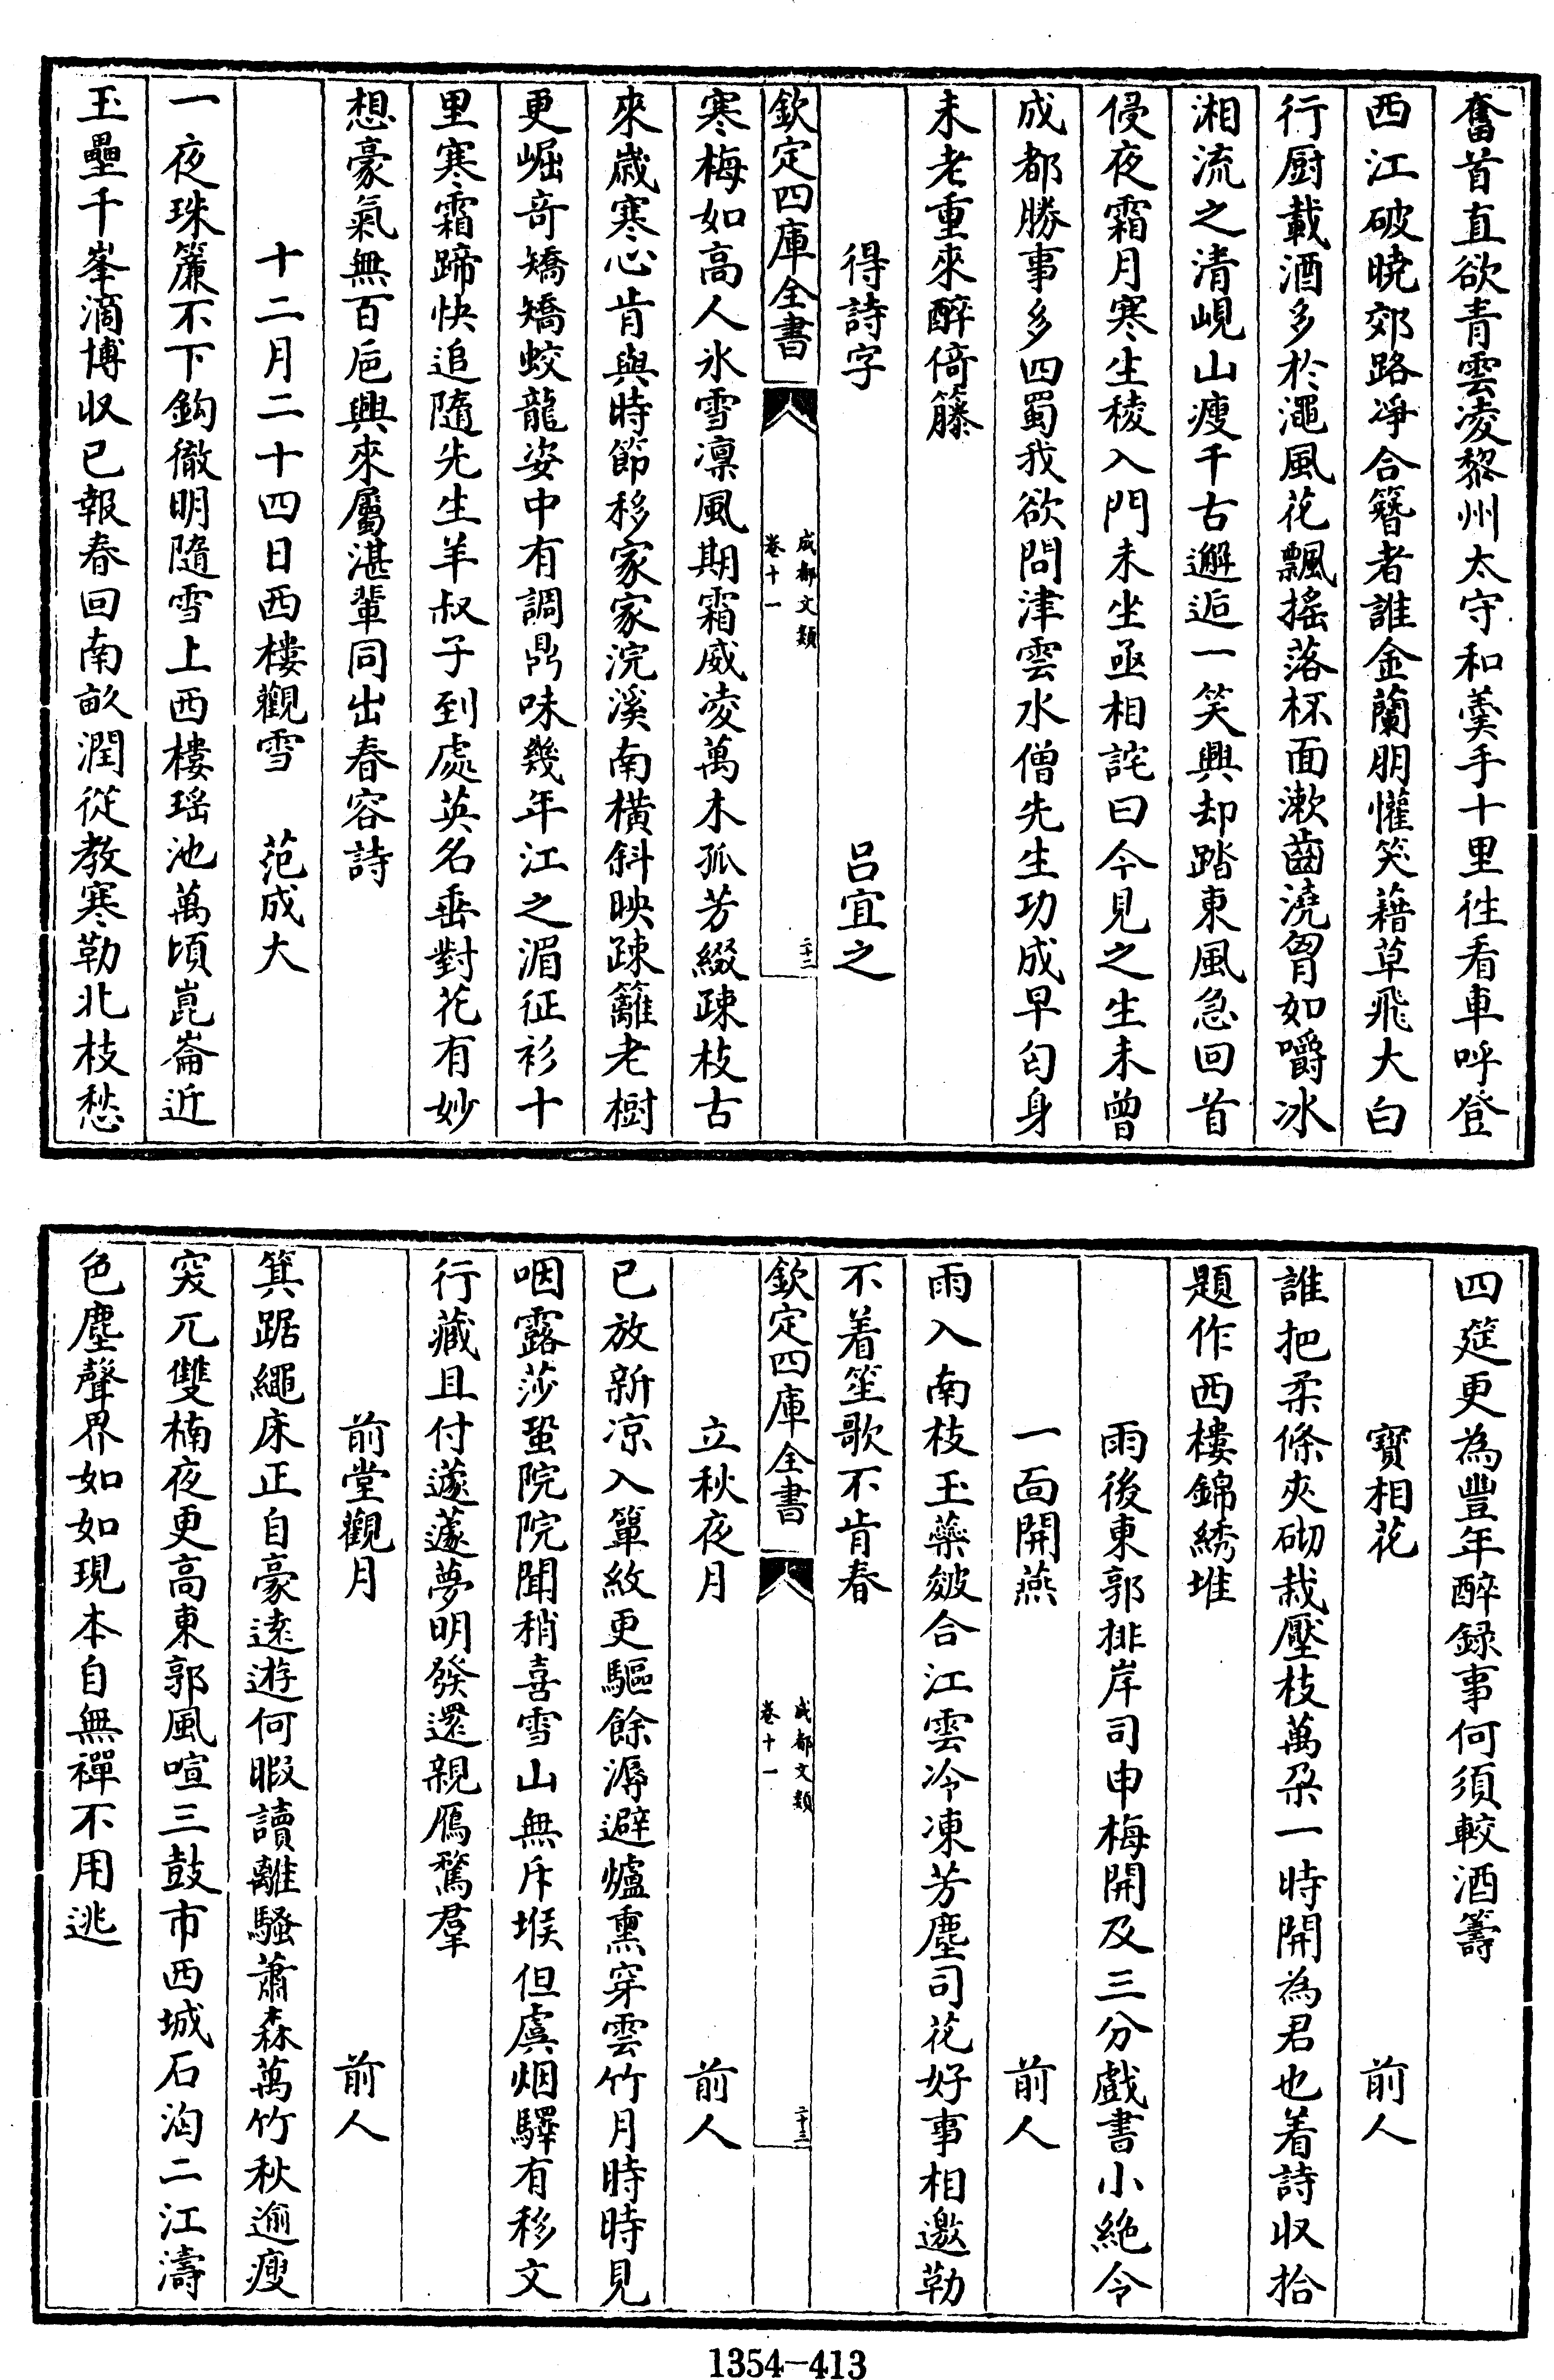 奮首直欲青雲凌黎州太守和羹手十里往看車呼登
西江破曉郊路凈合簪者誰金蘭朋懽笑藉草飛大白
行厨載酒多於澠風花飄搖落杯面漱齒澆胷如嚼冰
湘流之清峴山瘦千古邂逅一笑興却踏東風急回首
侵夜霜月寒生稜入門未坐亟相詫曰今見之生未曾
成都勝事多四蜀我欲問津雲水僧先生功成早匄身
未老重來醉倚籐
得詩字　吕宜之
欽定四庫全書
成都文類
卷十一
二十二
寒梅如高人氷雪凛風期霜威凌萬木孤芳綴疎枝古
來歲寒心肯與時節移家家浣溪南橫斜映疎籬老樹
更崛奇矯矯蛟龍姿中有調鼎味幾年江之湄征衫十
里寒霜蹄快追隨先生羊叔子到處英名垂對花有妙
想豪氣無百巵興來屬湛輩同出春容詩
十二月二十四日西樓觀雪　范成大
一夜珠簾不下鈎徹明隨雪上西樓瑶池萬頃崑崙近
玉壘千峯滴博収已報春回南畝潤從教寒勒北枝愁
四筵更為豐年醉録事何須較酒籌
寳相花　前人
誰把柔條夾砌栽壓枝萬朶一時開為君也着詩収拾
題作西樓錦綉堆
雨後東郭排岸司申梅開及三分戯書小絶令
一靣開燕　前人
雨入南枝玉蘂皴合江雲冷凍芳塵司花好事相邀勒
不着笙歌不肯春
欽定四庫全書
成都文類
卷十一
二十三
立秋夜月　前人
已放新凉入簟紋更驅餘溽避爐熏穿雲竹月時時見
咽露莎蛩院院聞稍喜雪山無斥堠但虞烟驛有移文
行藏且付蘧蘧夢明發還親鴈鶩羣
前堂觀月　前人
箕踞繩床正自豪遠遊何暇讀離騷蕭森萬竹秋逾瘦
突兀雙楠夜更高東郭風喧三鼓市西城石洶二江濤
色塵聲界如如現本自無禪不用逃
1354—413